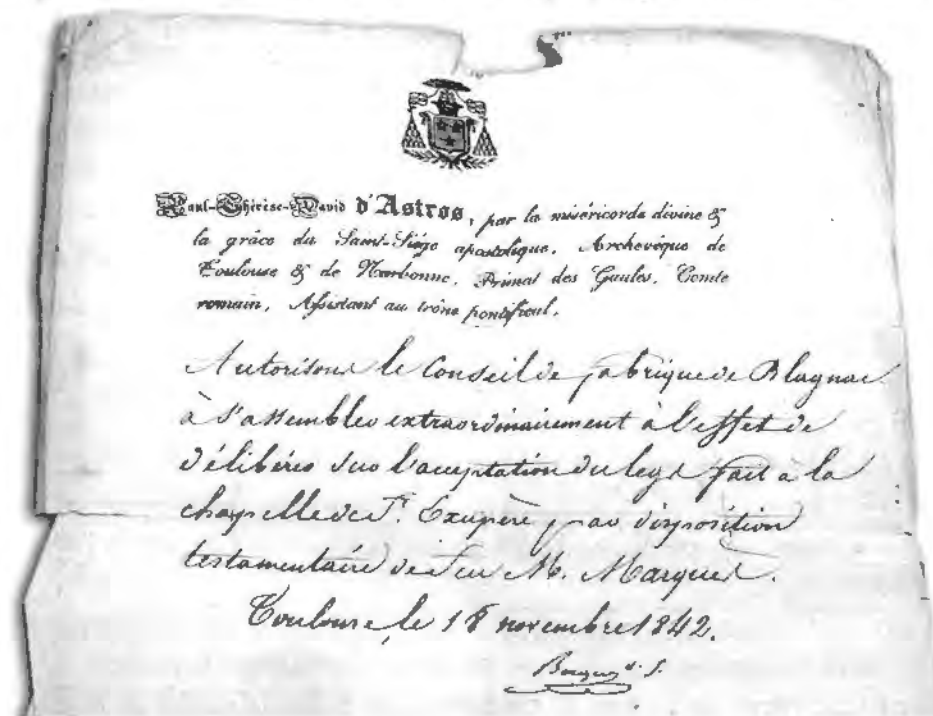 Paul-Thérèse-David d'Astros, par la miséricorde divine &
la grâce du Saint-Siége apostolique, Archevêque de
Toulouse & de Narbonne, Primat des Gaules, Comte
romain, Assistant au trône pontifical.
Autorisons le Conseil de fabrique de Blagnac
à s'assembler extraordinairement à l'effet de
délibérer sur l'acceptation du legs fait à la
chapelle de St. Exupère par disposition
testamentaire de feu M. Marquet.
Toulouse le 18 novembre 1842.